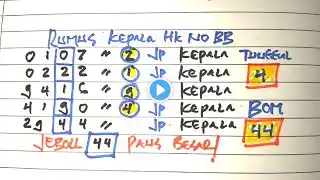 RUMUS KEPALA HK NO BB
0 1 0 7 " 2 JP KEPALA TUNGGUL
0 2 2 2 " 1 JP KEPALA 4
9 4 1 6 " 9 KEPALA
4 1 9 0 " 4 JP KEPALA BOM
2 9 4 4 " JP KEPALA 44
JEBOLL 44 PALIG BESAR